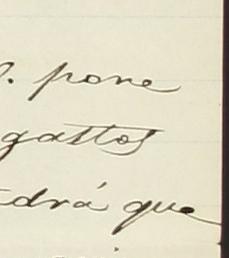 pone
gastos
drá que